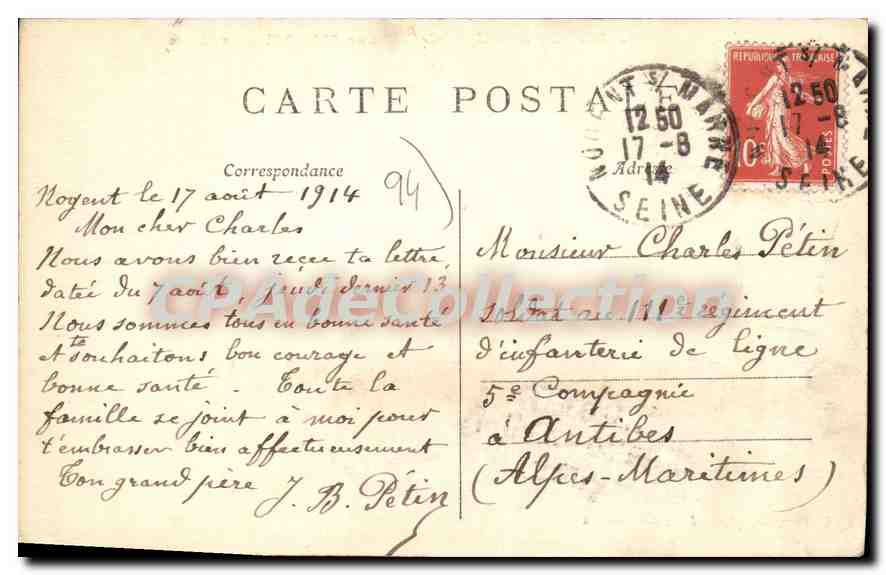 CARTE POSTALE
Correspondance
Adresse
Nogent le 17 août 1914
94
Mon cher Charles
Nous avons bien reçue ta lettre
datée du 7 août, jeudi dernier 13
Nous sommes tous en bonne santé
et te souhaitons bon courage et
bonne santé. Toute la
famille se joint à moi pour
t'embrasser bien affectueusement
Ton grand père J. B. Pétin
Monsieur Charles Pétin
soldat au 111e régiment
d'infanterie de ligne
5e Compagnie
à Antibes
(Alpes-Maritimes)
NOGENT S/ MARNE
12 50
17 - 8
14
SEINE
REPUBLIQUE FRANÇAISE
10c
POSTES
12 50
17 - 8
14
SEINE
CPAdeCollection